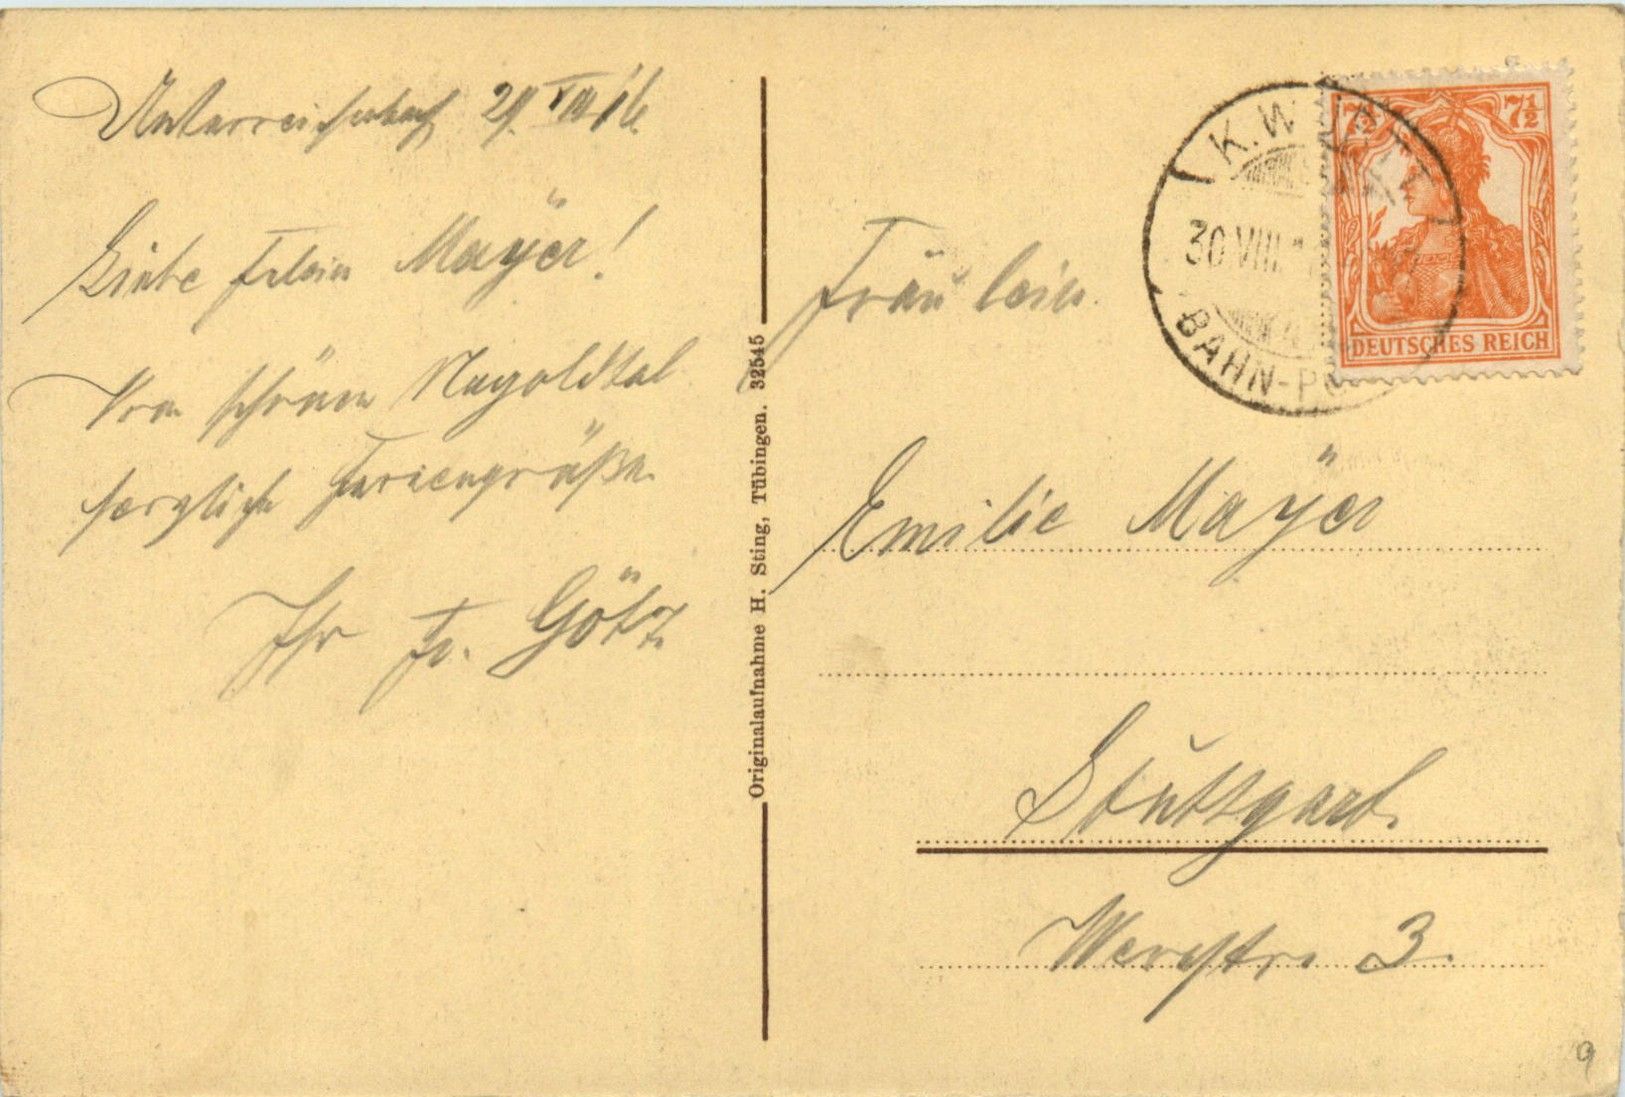 Unterreichenbach 29. VIII 16.
Liebe Frlein Mayer!
Vom schönen Nagoldtal
herzliche Feriengrüße.
Ihr Fr. Götz
Originalaufnahme H. Sting, Tübingen. 32545
K.W.
30 VIII.
BAHN-PO
7½ 7½
DEUTSCHES REICH
Fräulein
Emilie Mayer
Stuttgart.
3.
9